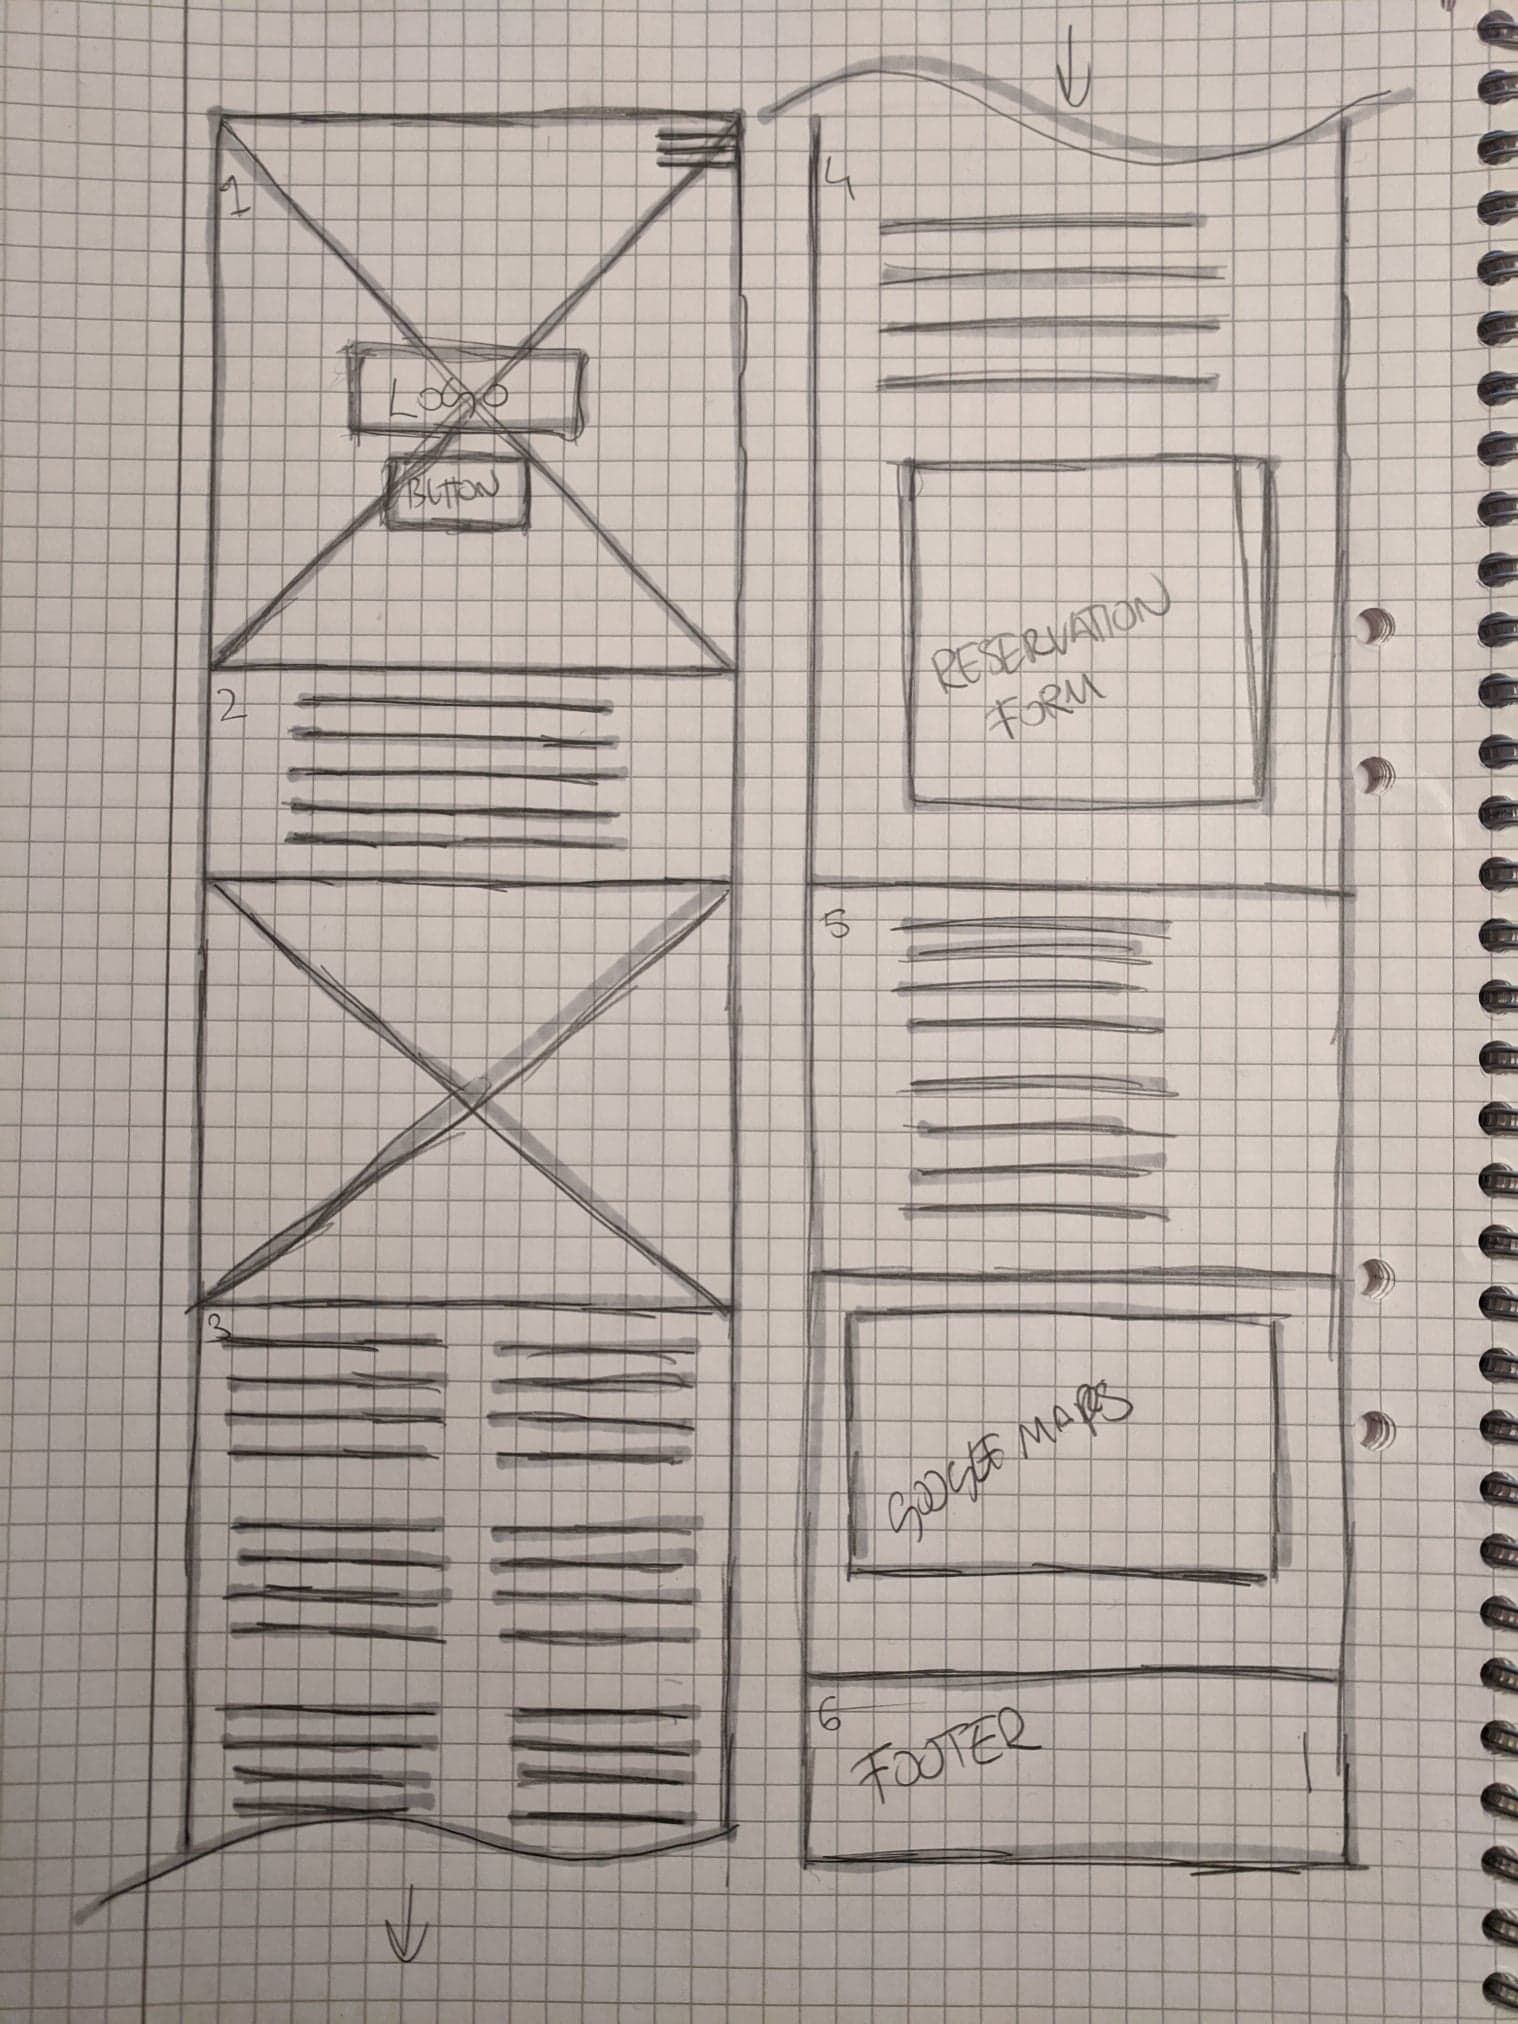 1
LOGO
BUTTON
2
3
4
RESERVATION
FORM
5
GOOGLE MAPS
6
FOOTER